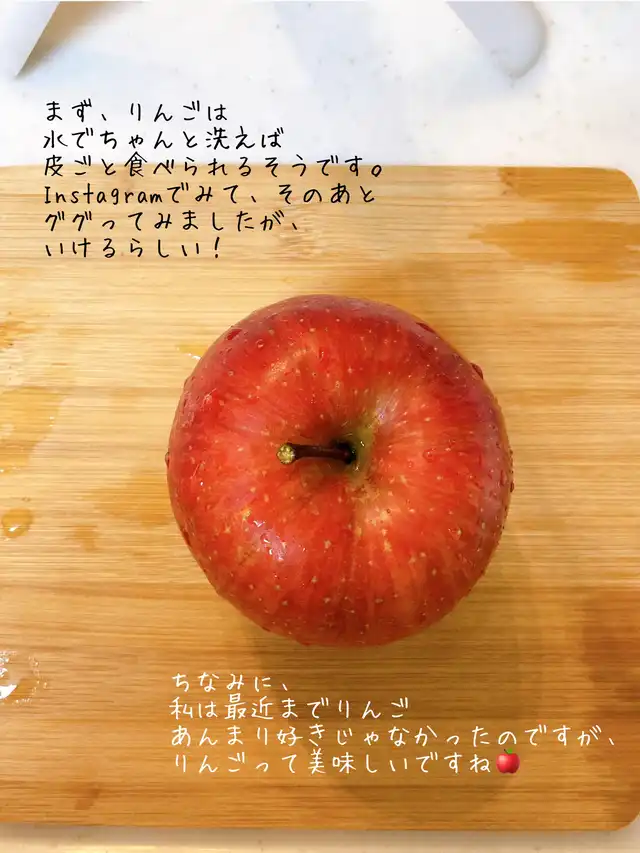 まず、りんごは
水でちゃんと洗えば
皮ごと食べられるそうです。
Instagramでみて、そのあと
ググってみましたが、
いけるらしい!
ちなみに、
私は最近までりんご
あんまり好きじゃなかったのですが、
りんごって美味しいですね🍎